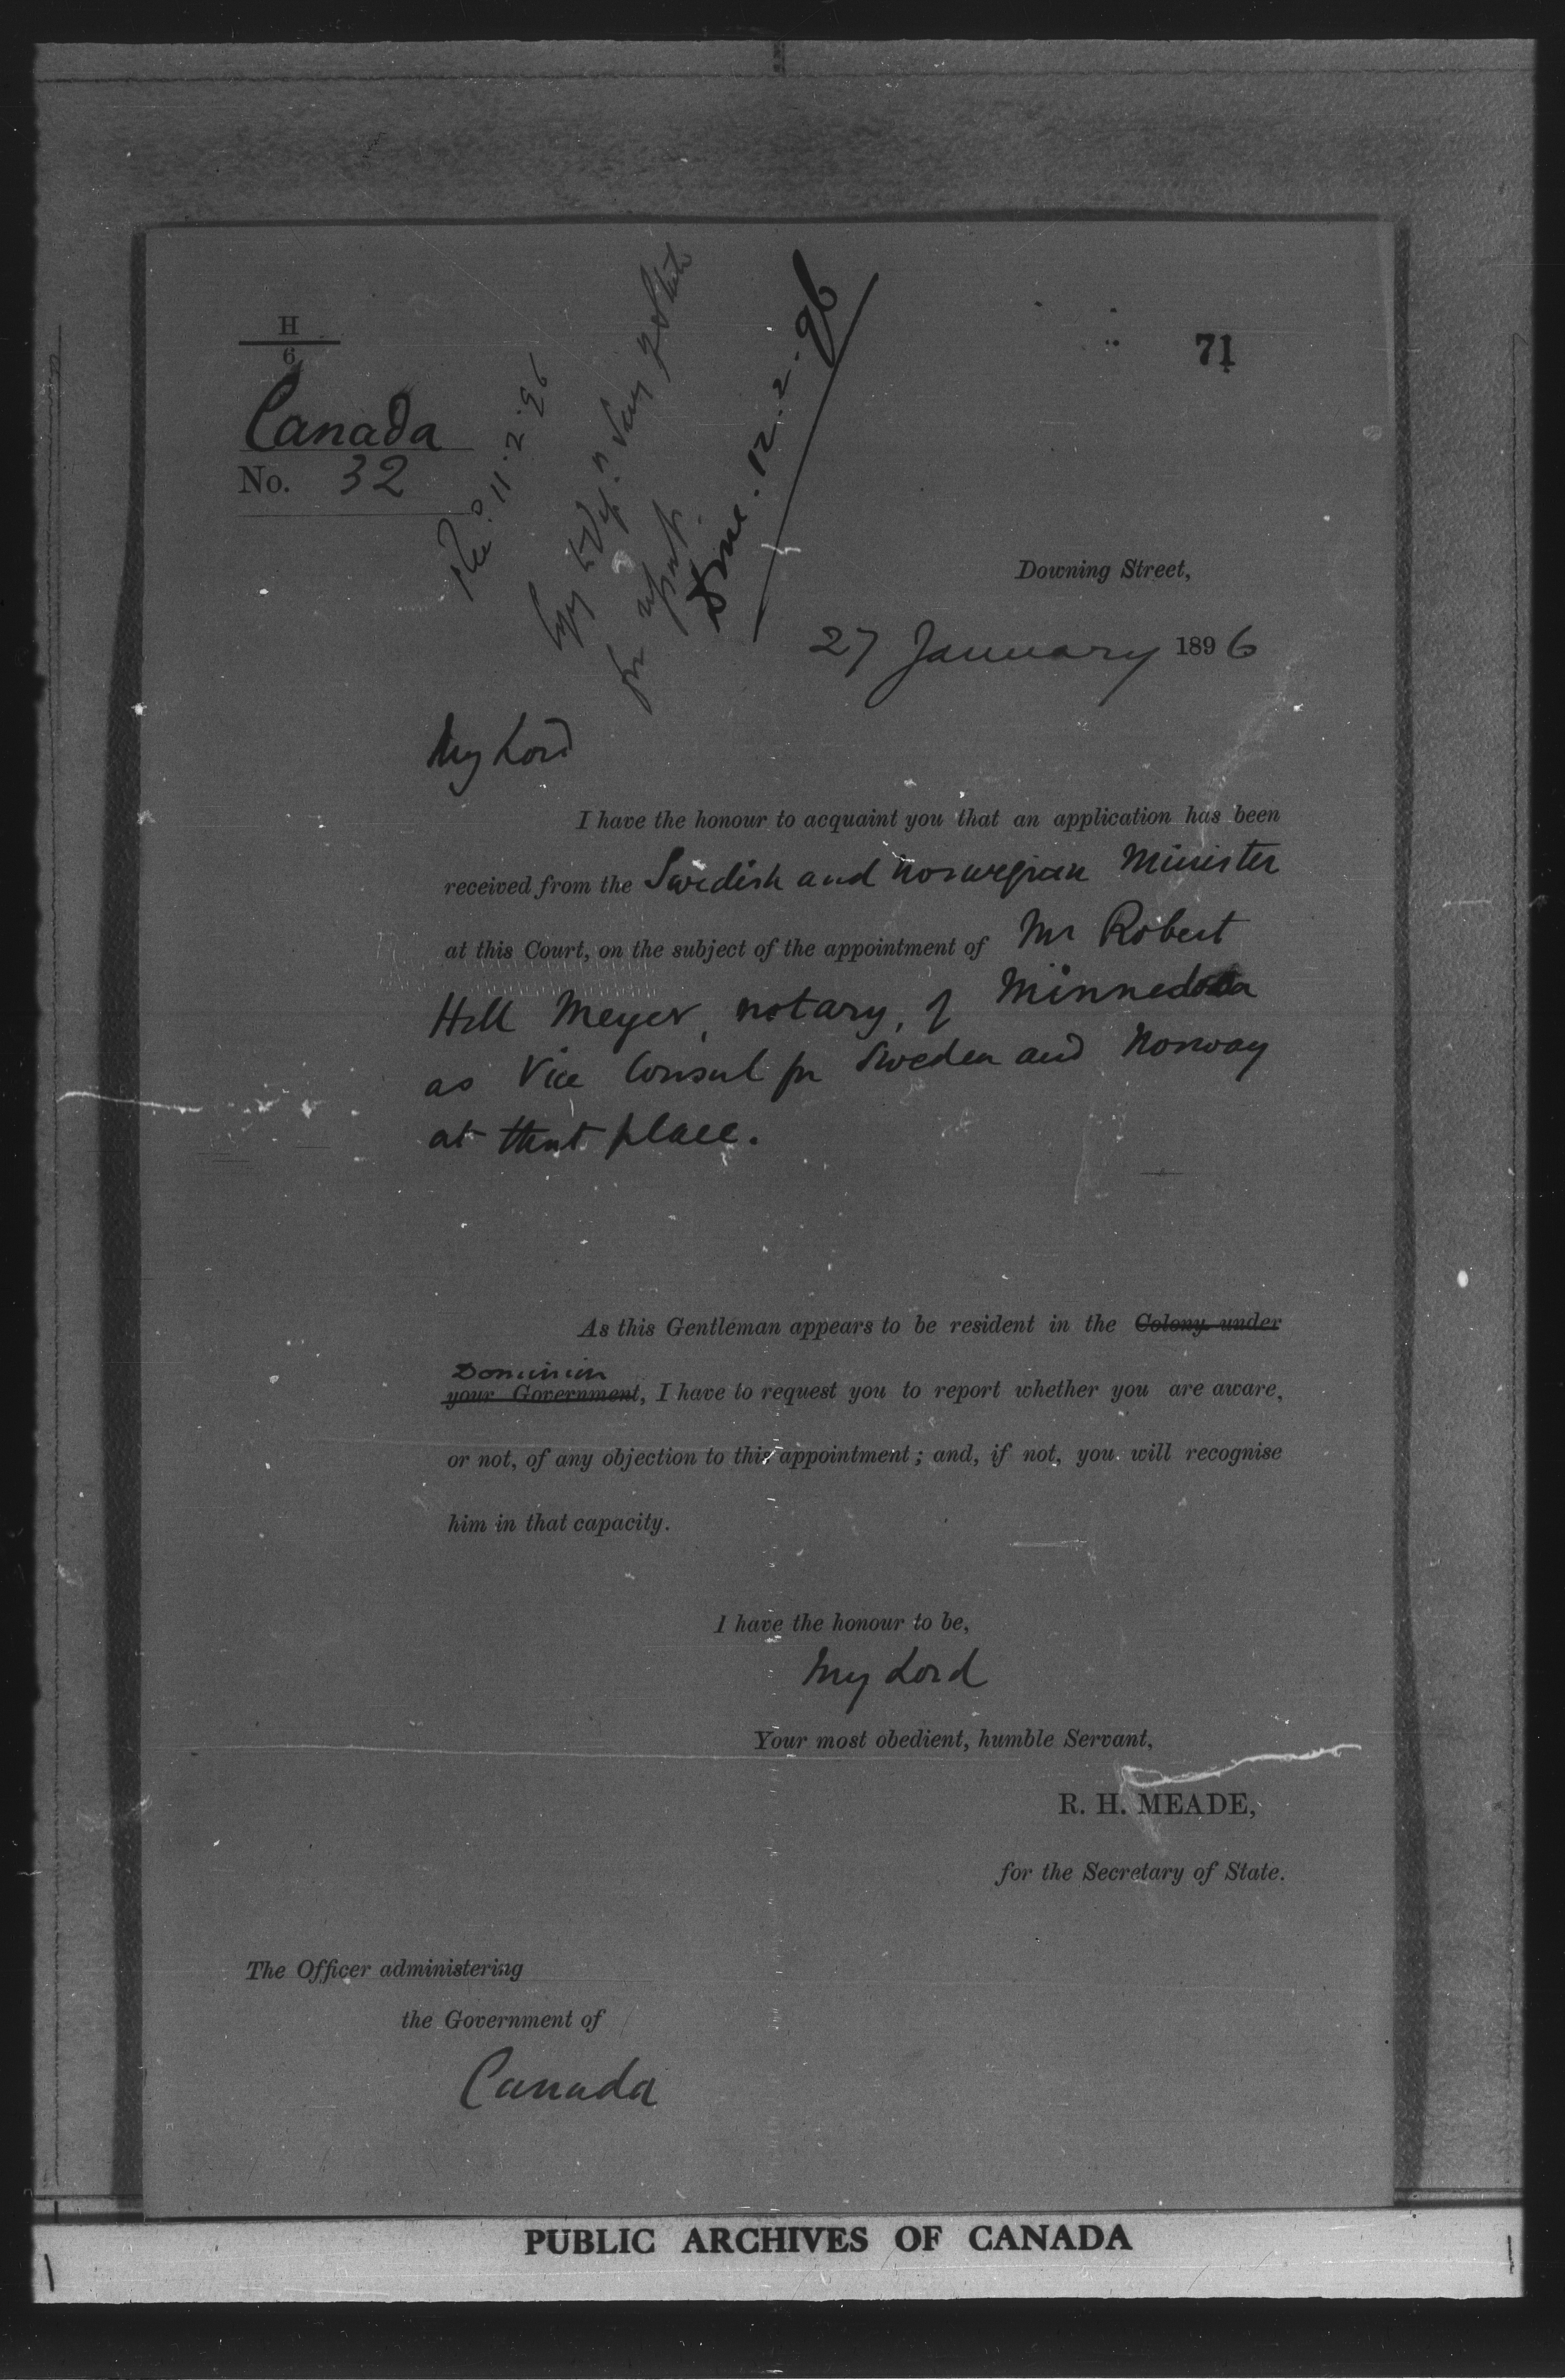 H
6
71
Canada
No. 32
Rec.d 11.2.96
Copy to Dep.n Secy of State
for report.
Done. 12.2.96
Downing Street,
27 January 1896
My Lord
I have the honour to acquaint you that an application has been
received from the Swedish and Norwegian Minister
at this Court, on the subject of the appointment of Mr Robert
Hill Meyer, notary, of Minnedosa
as Vice Consul for Sweden and Norway
at that place.
As this Gentleman appears to be resident in the Colony under
Dominion
your Government, I have to request you to report whether you are aware,
or not, of any objection to this appointment; and, if not, you will recognise
him in that capacity.
I have the honour to be,
My Lord
Your most obedient, humble Servant,
R. H. MEADE,
for the Secretary of State.
The Officer administering
the Government of
Canada
PUBLIC ARCHIVES OF CANADA